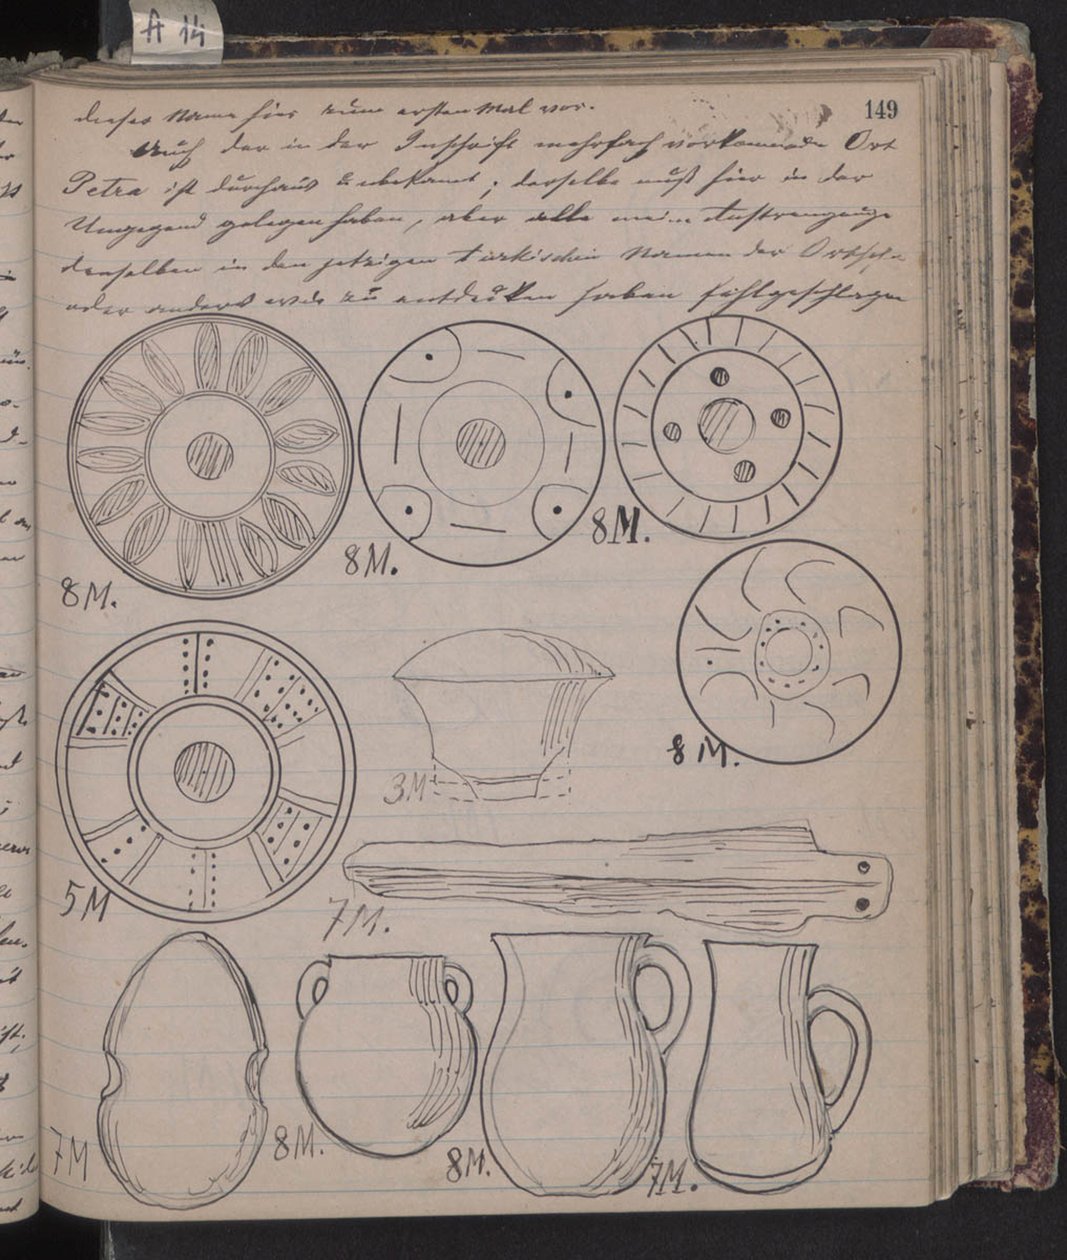 A 14
149
dieser Name hier zum ersten Mal vor.
Auch der in der Inschrift mehrfach vorkomende Ort
Petra ist durchaus unbekannt; derselbe muß hier in der
Umgegend gelegen haben, aber alle meine Anstrengunge
denselben in den jetzigen türkischen Namen der Ortsch
oder anders wie zu entdecken haben fehlgeschlagen
8 M.
8 M.
8 M.
8 M.
3 M
5 M
7 M.
7 M
8 M.
8 M.
7 M.